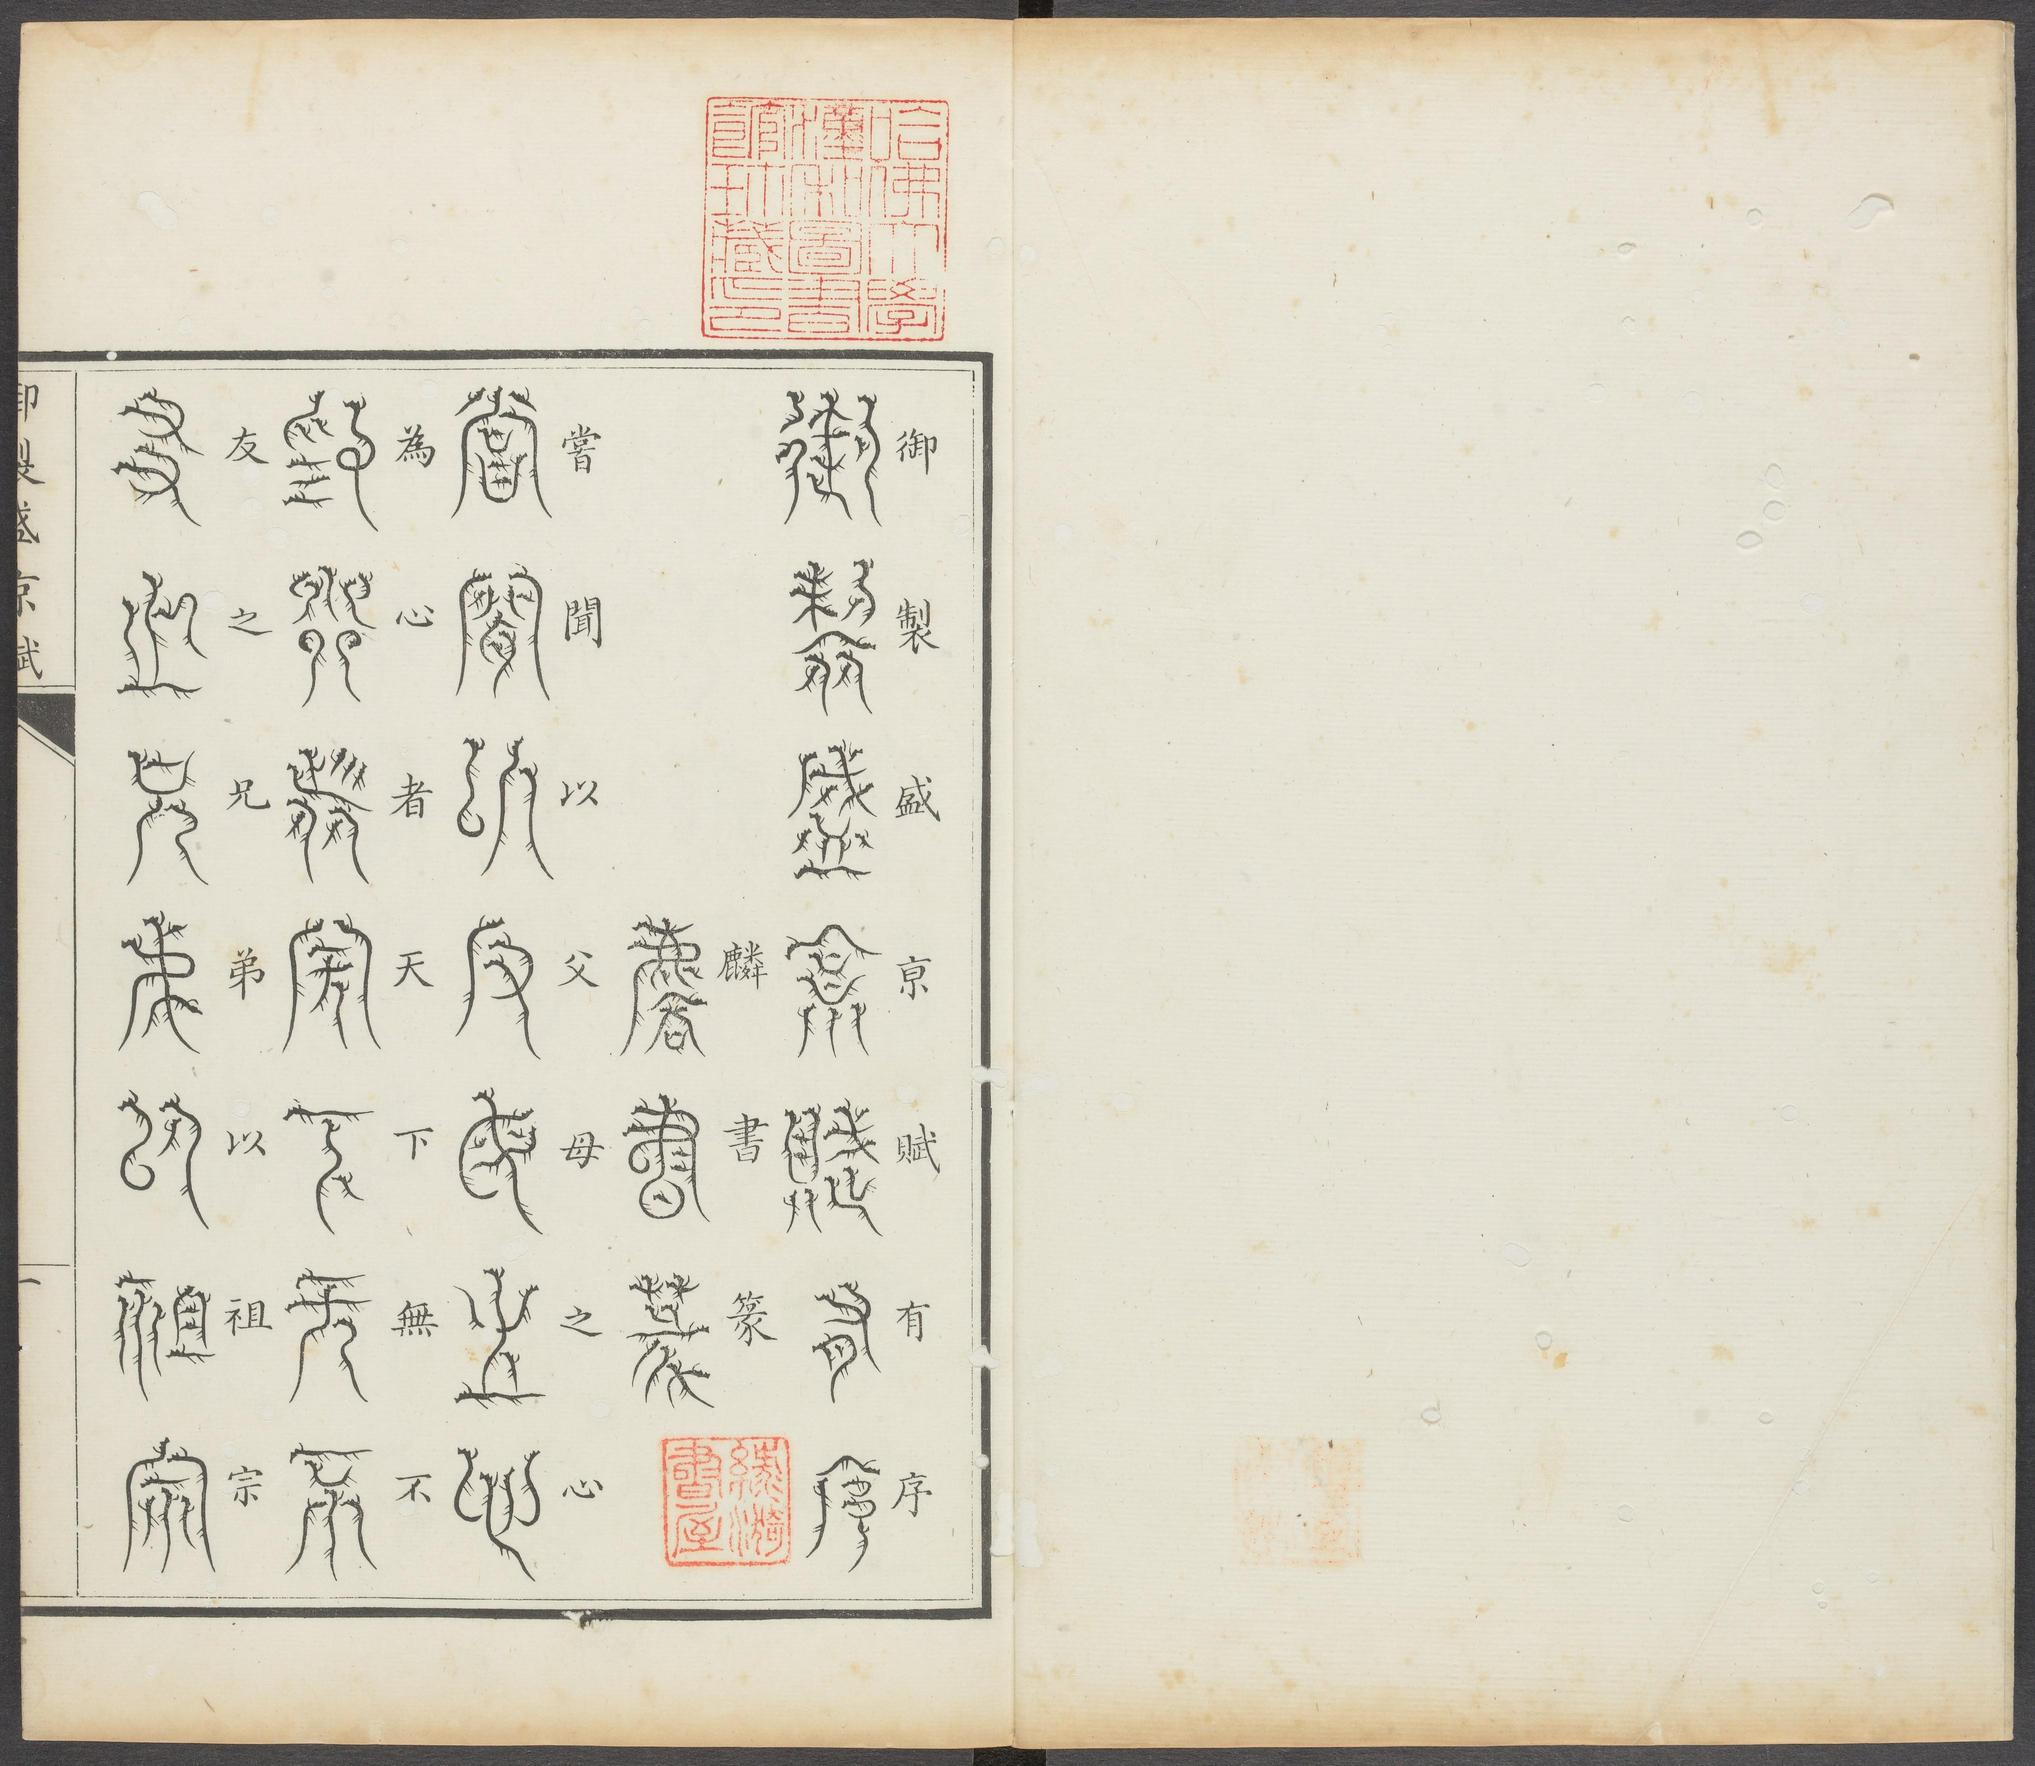 御製盛京賦有序
麟書篆
嘗聞以父母之心
為心者天下無不
友之兄弟以祖宗
御製盛京賦
一
哈佛大學
漢和圖書
館珍藏印